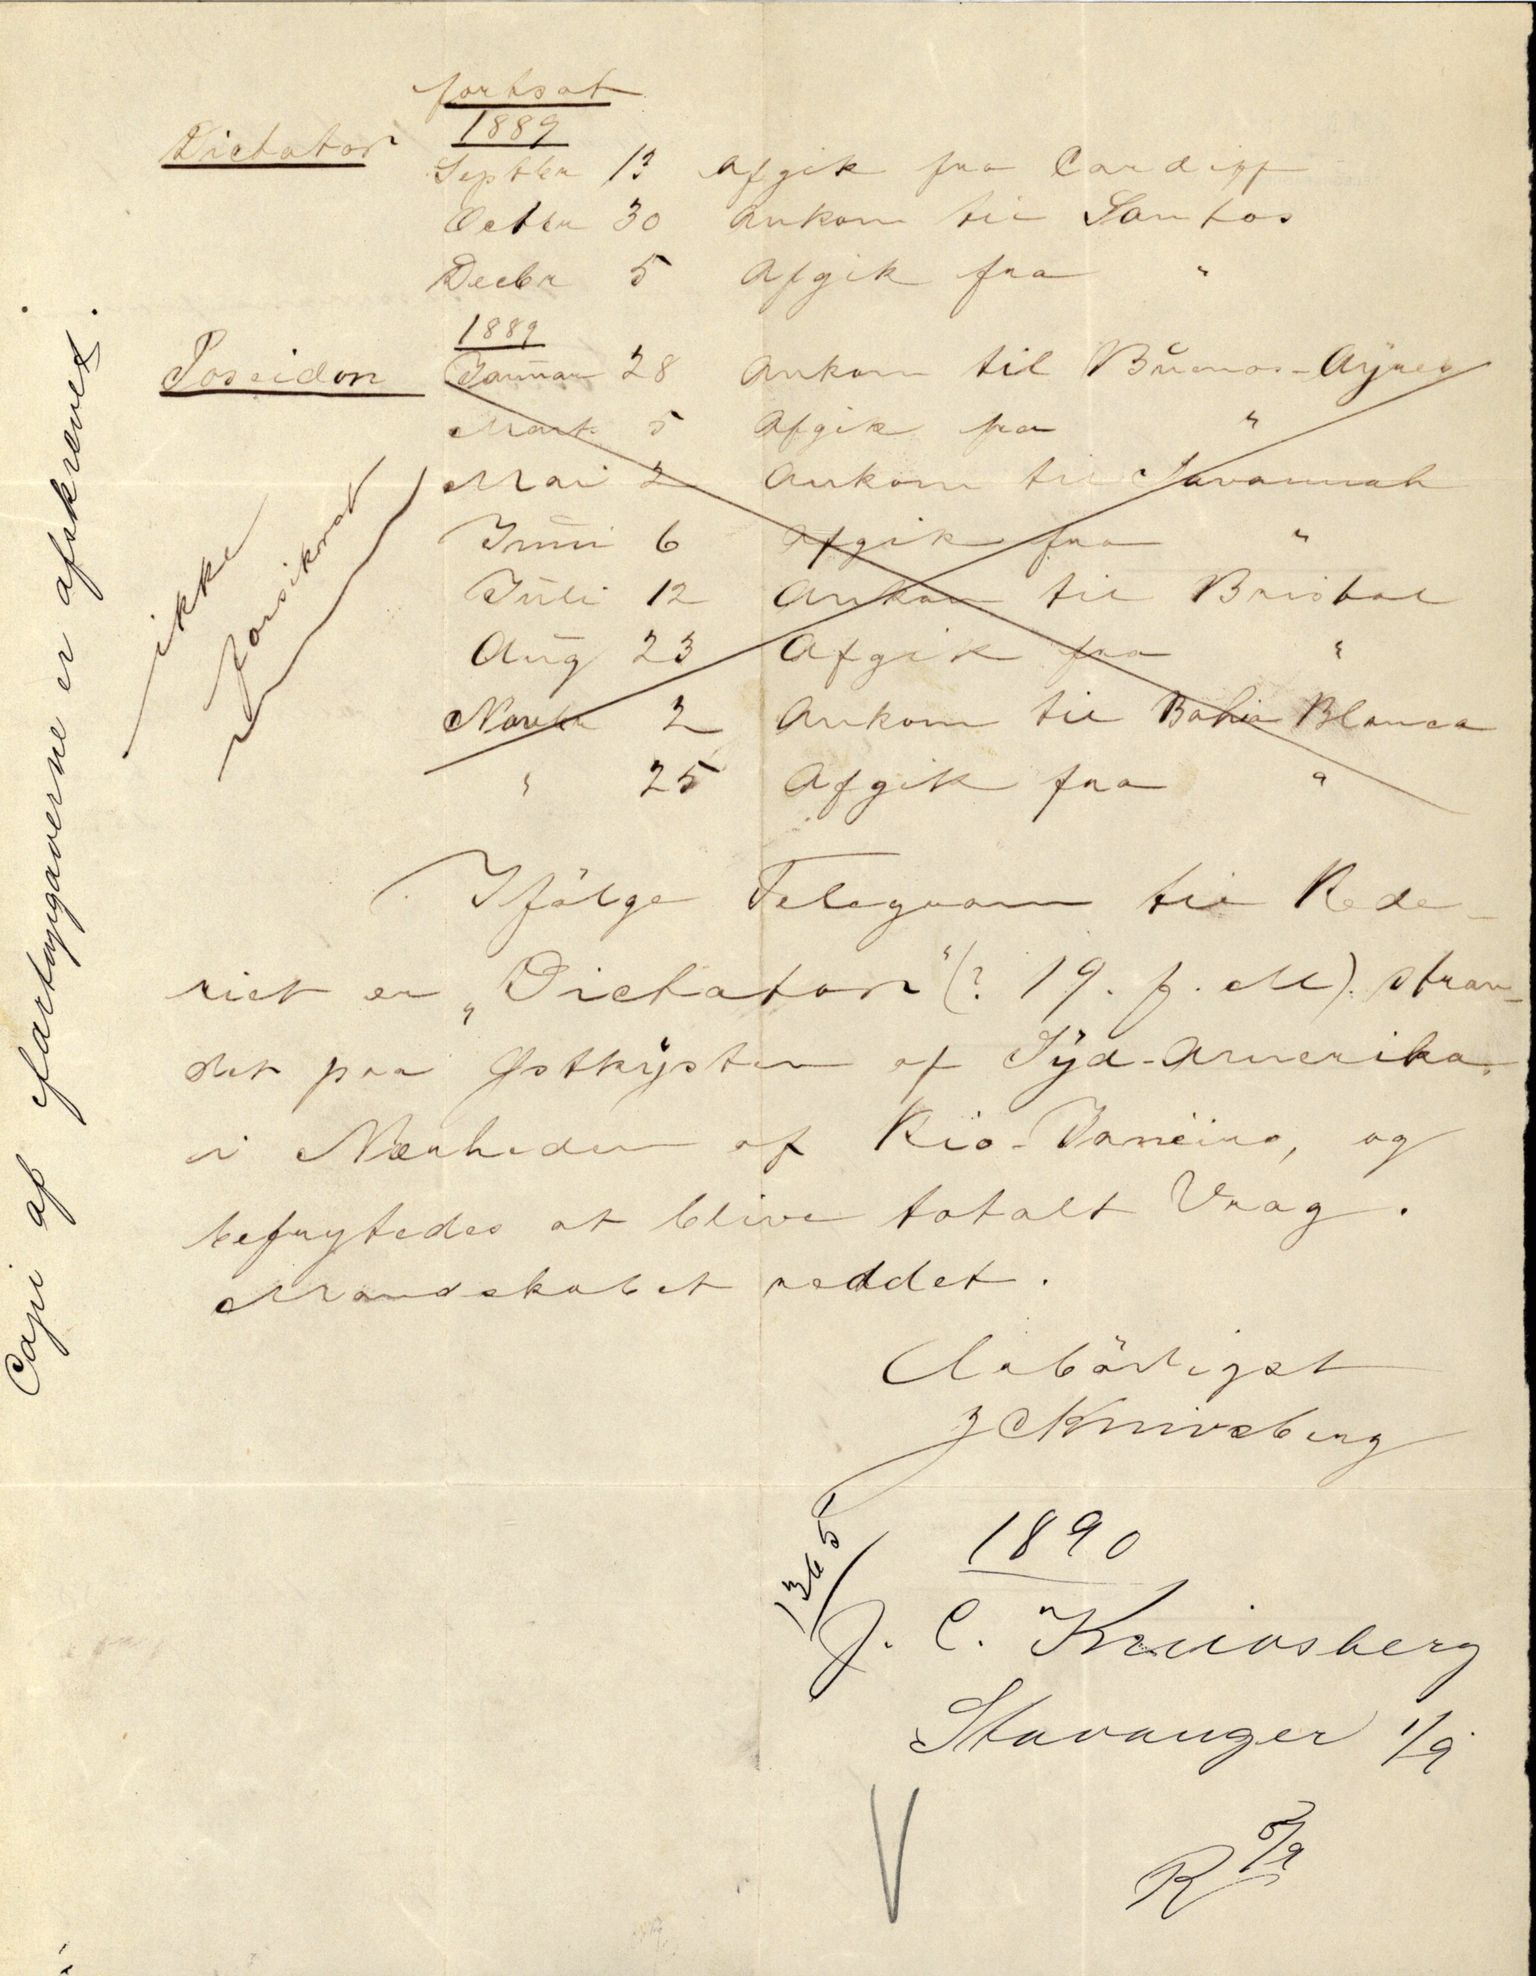 fortsat
Dictator 1889
Septbr 13 Afgik fra Cardiff
Octbr 30 Ankom til Santos
Decbr 5 Afgik fra "
1889
Poseidon Januar 28 Ankom til Buenos-Ayres
Mart. 5 Afgik fra "
Mai 2 Ankom til Savannah
Juni 6 Afgik fra "
Juli 12 Ankom til Bristol
Aug 23 Afgik fra "
Novbr 2 Ankom til Bahia Blanca
" 25 Afgik fra "
ikke
forsikret
Copi af Fartøjgaverne er afskrevet.
Ifölge Telegram til Rede-
riet er „Dictator" (? 19. f. M). stran-
det paa Østkysten af Syd-Amerika.
i Nærheden af Rio-Janeiro, og
befrygtedes at blive totalt Vrag.
Mandskabet reddet.
Ærbödigst
J C Knivsberg
1365
1890
J. C. Knivsberg
Stavanger 1/9
R 5/9
V